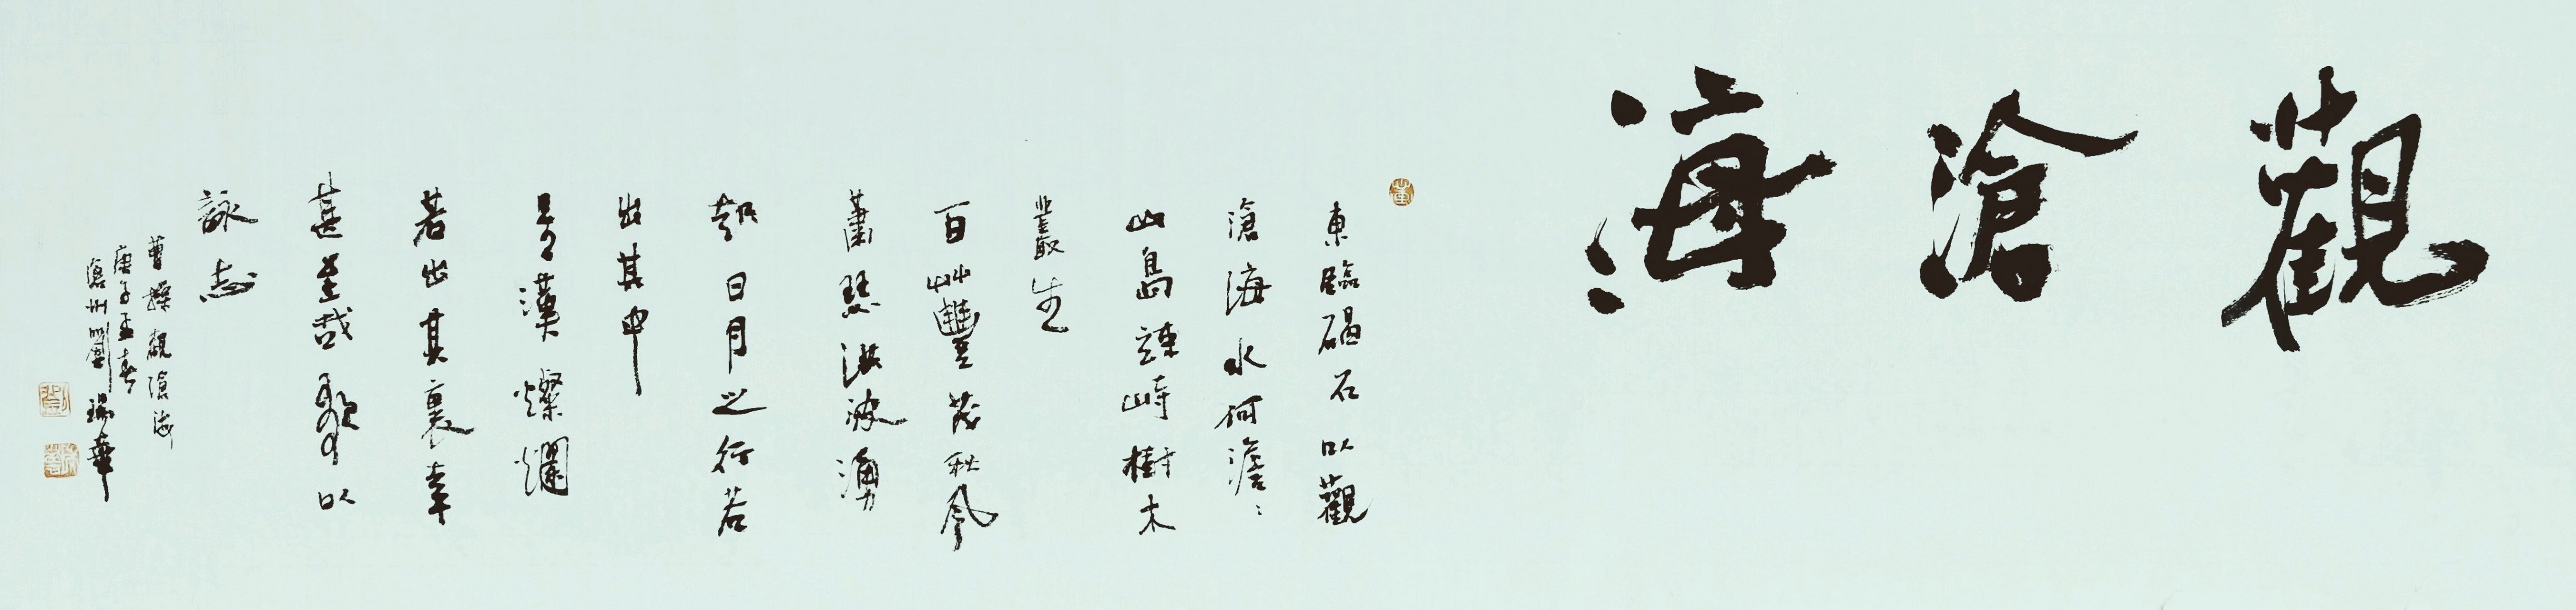 觀滄海
東臨碣石以觀
滄海水何澹〻
山島竦峙樹木
叢生
百艸豐茂秋風
蕭瑟洪波湧
起日月之行若
出其中
星漢燦爛
若出其裏幸
甚至哉歌以
詠志
曹操觀滄海
庚子孟春
滄州劉瑞華